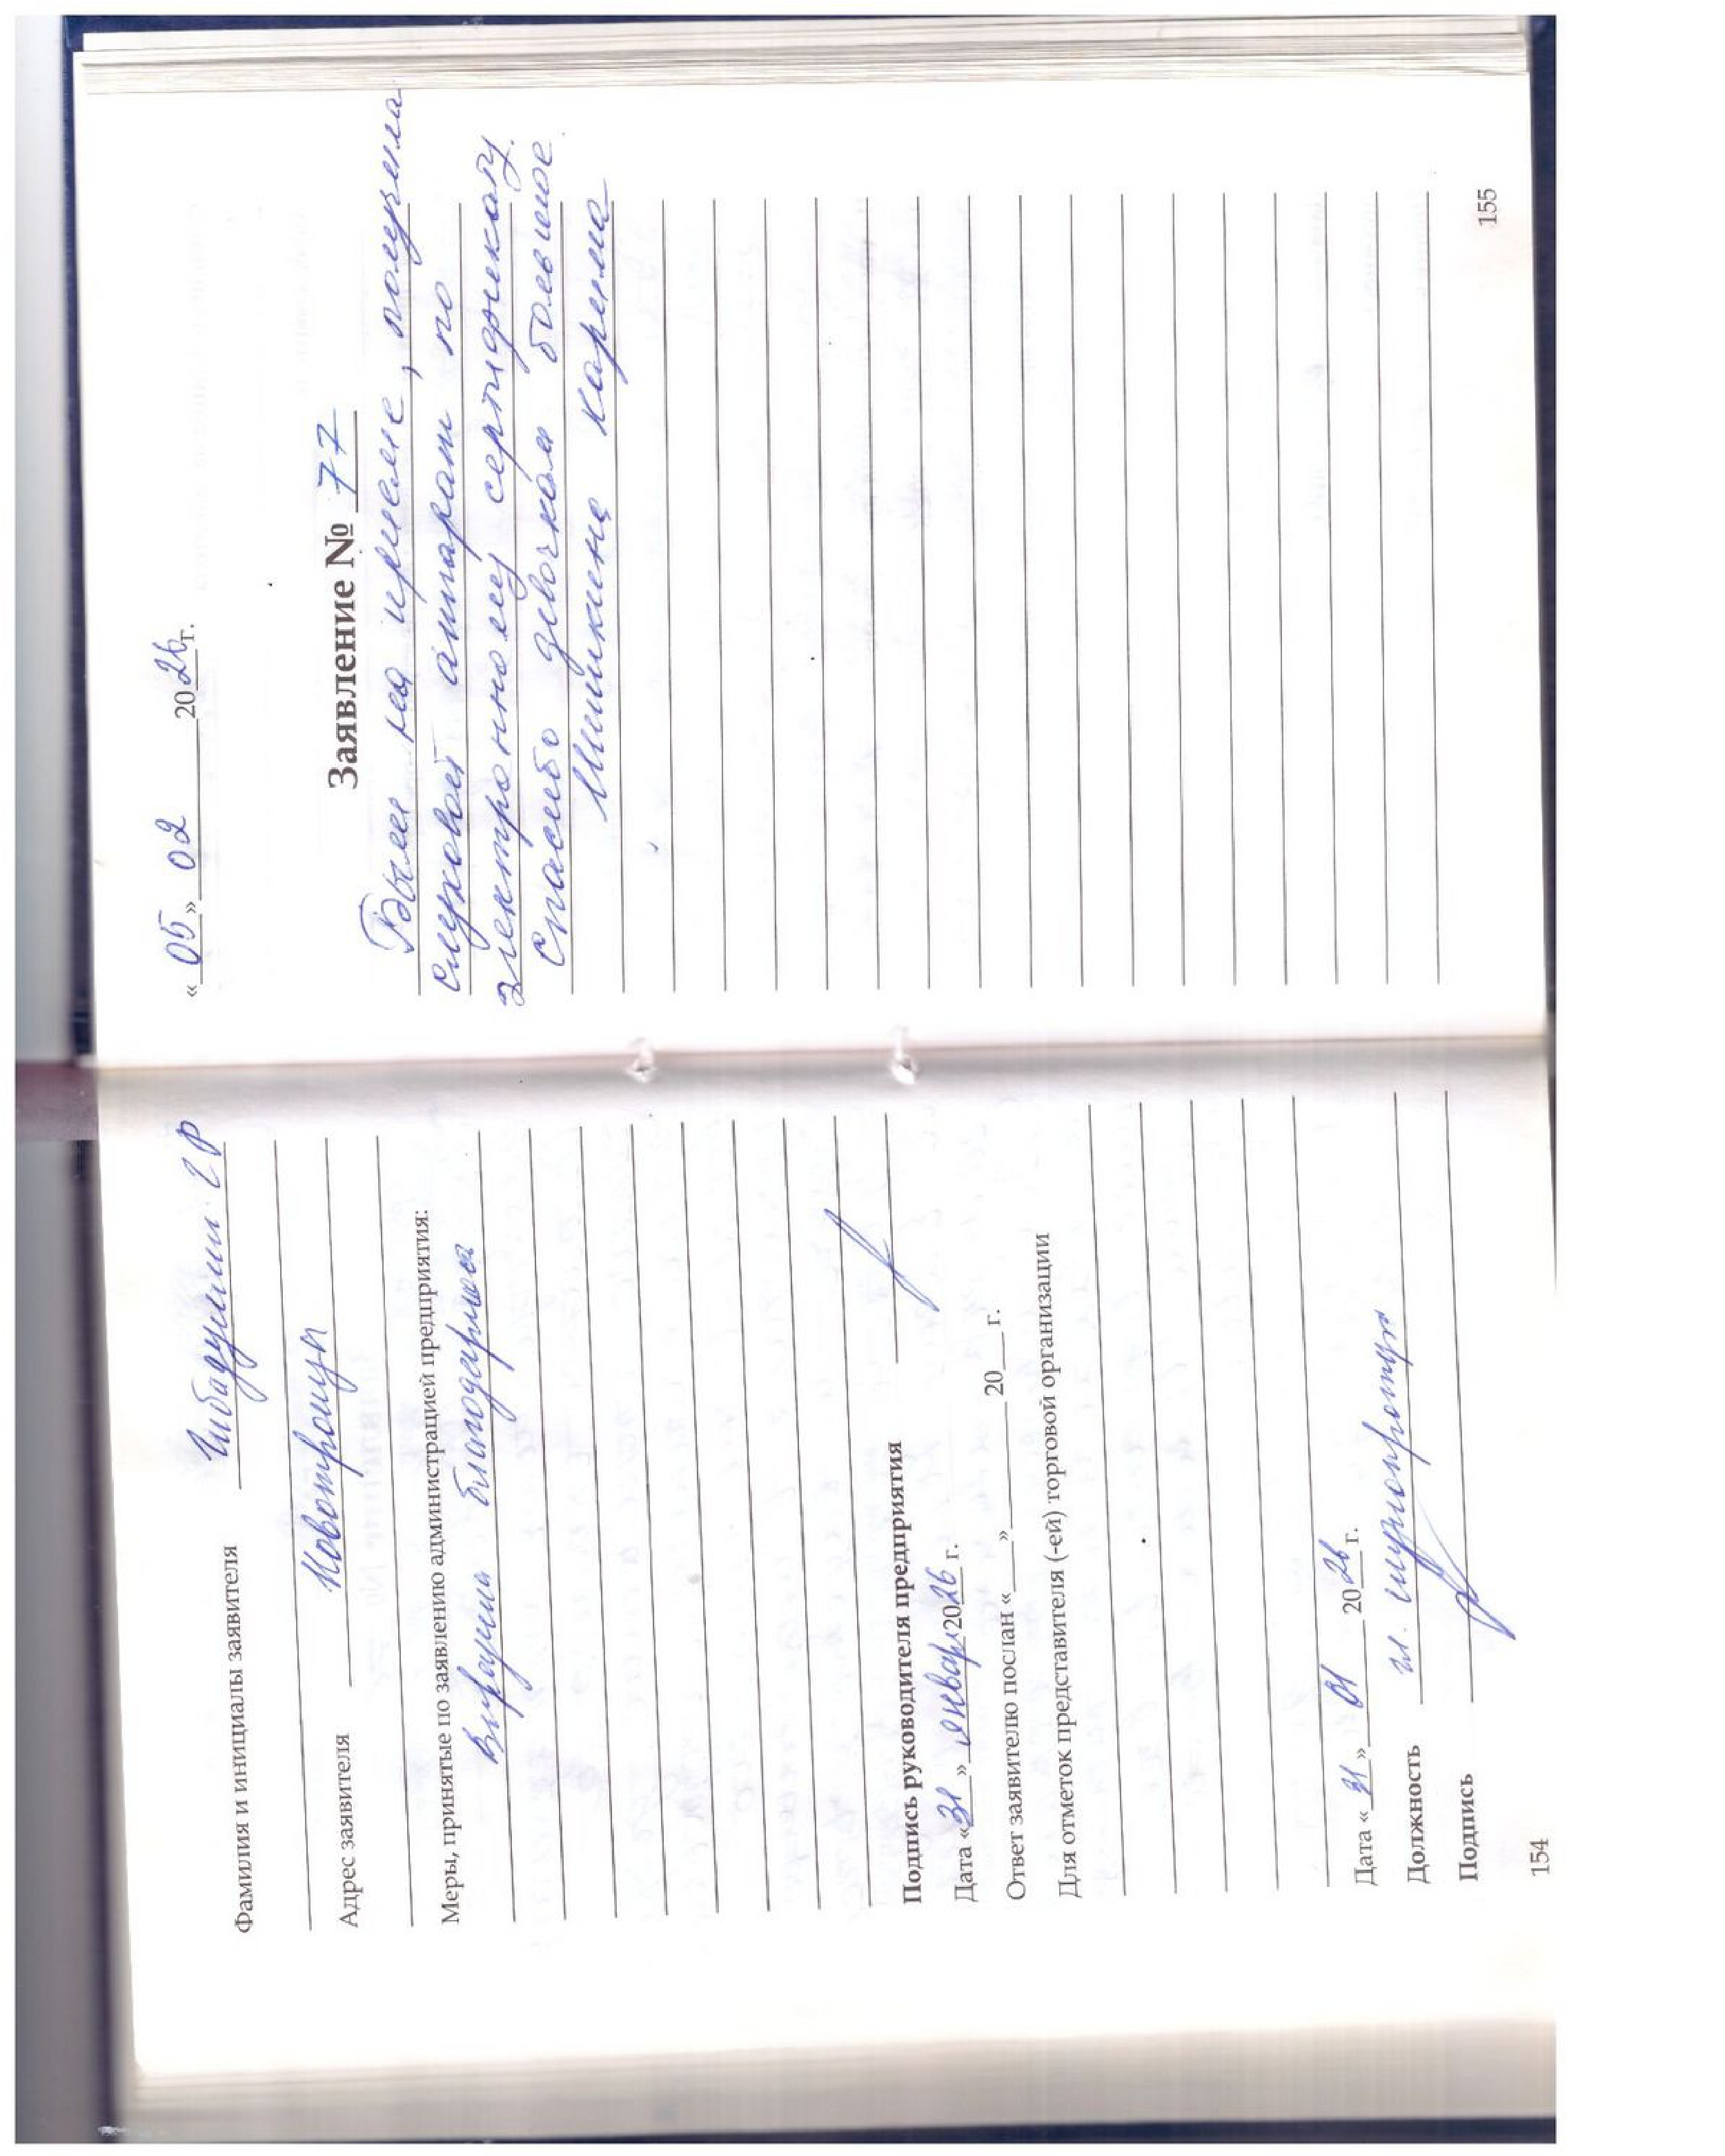 Фамилия и инициалы заявителя Гибадулин Г Р
Адрес заявителя Новотроицк
Меры, принятые по заявлению администрацией предприятия:
благодарность
Подпись руководителя предприятия
Дата «31» январ 2026 г.
Ответ заявителю послан «___»________20___г.
Для отметок представителя (-ей) торговой организации
Дата «31» 01 2026г.
Должность гл.
Подпись
154
«05» 02 2026г.
Заявление № 77
Были на приеме, получила
слуховой аппарат по
электронному сертификату.
Спасибо девочкам большое.
Мишкина Карина
155